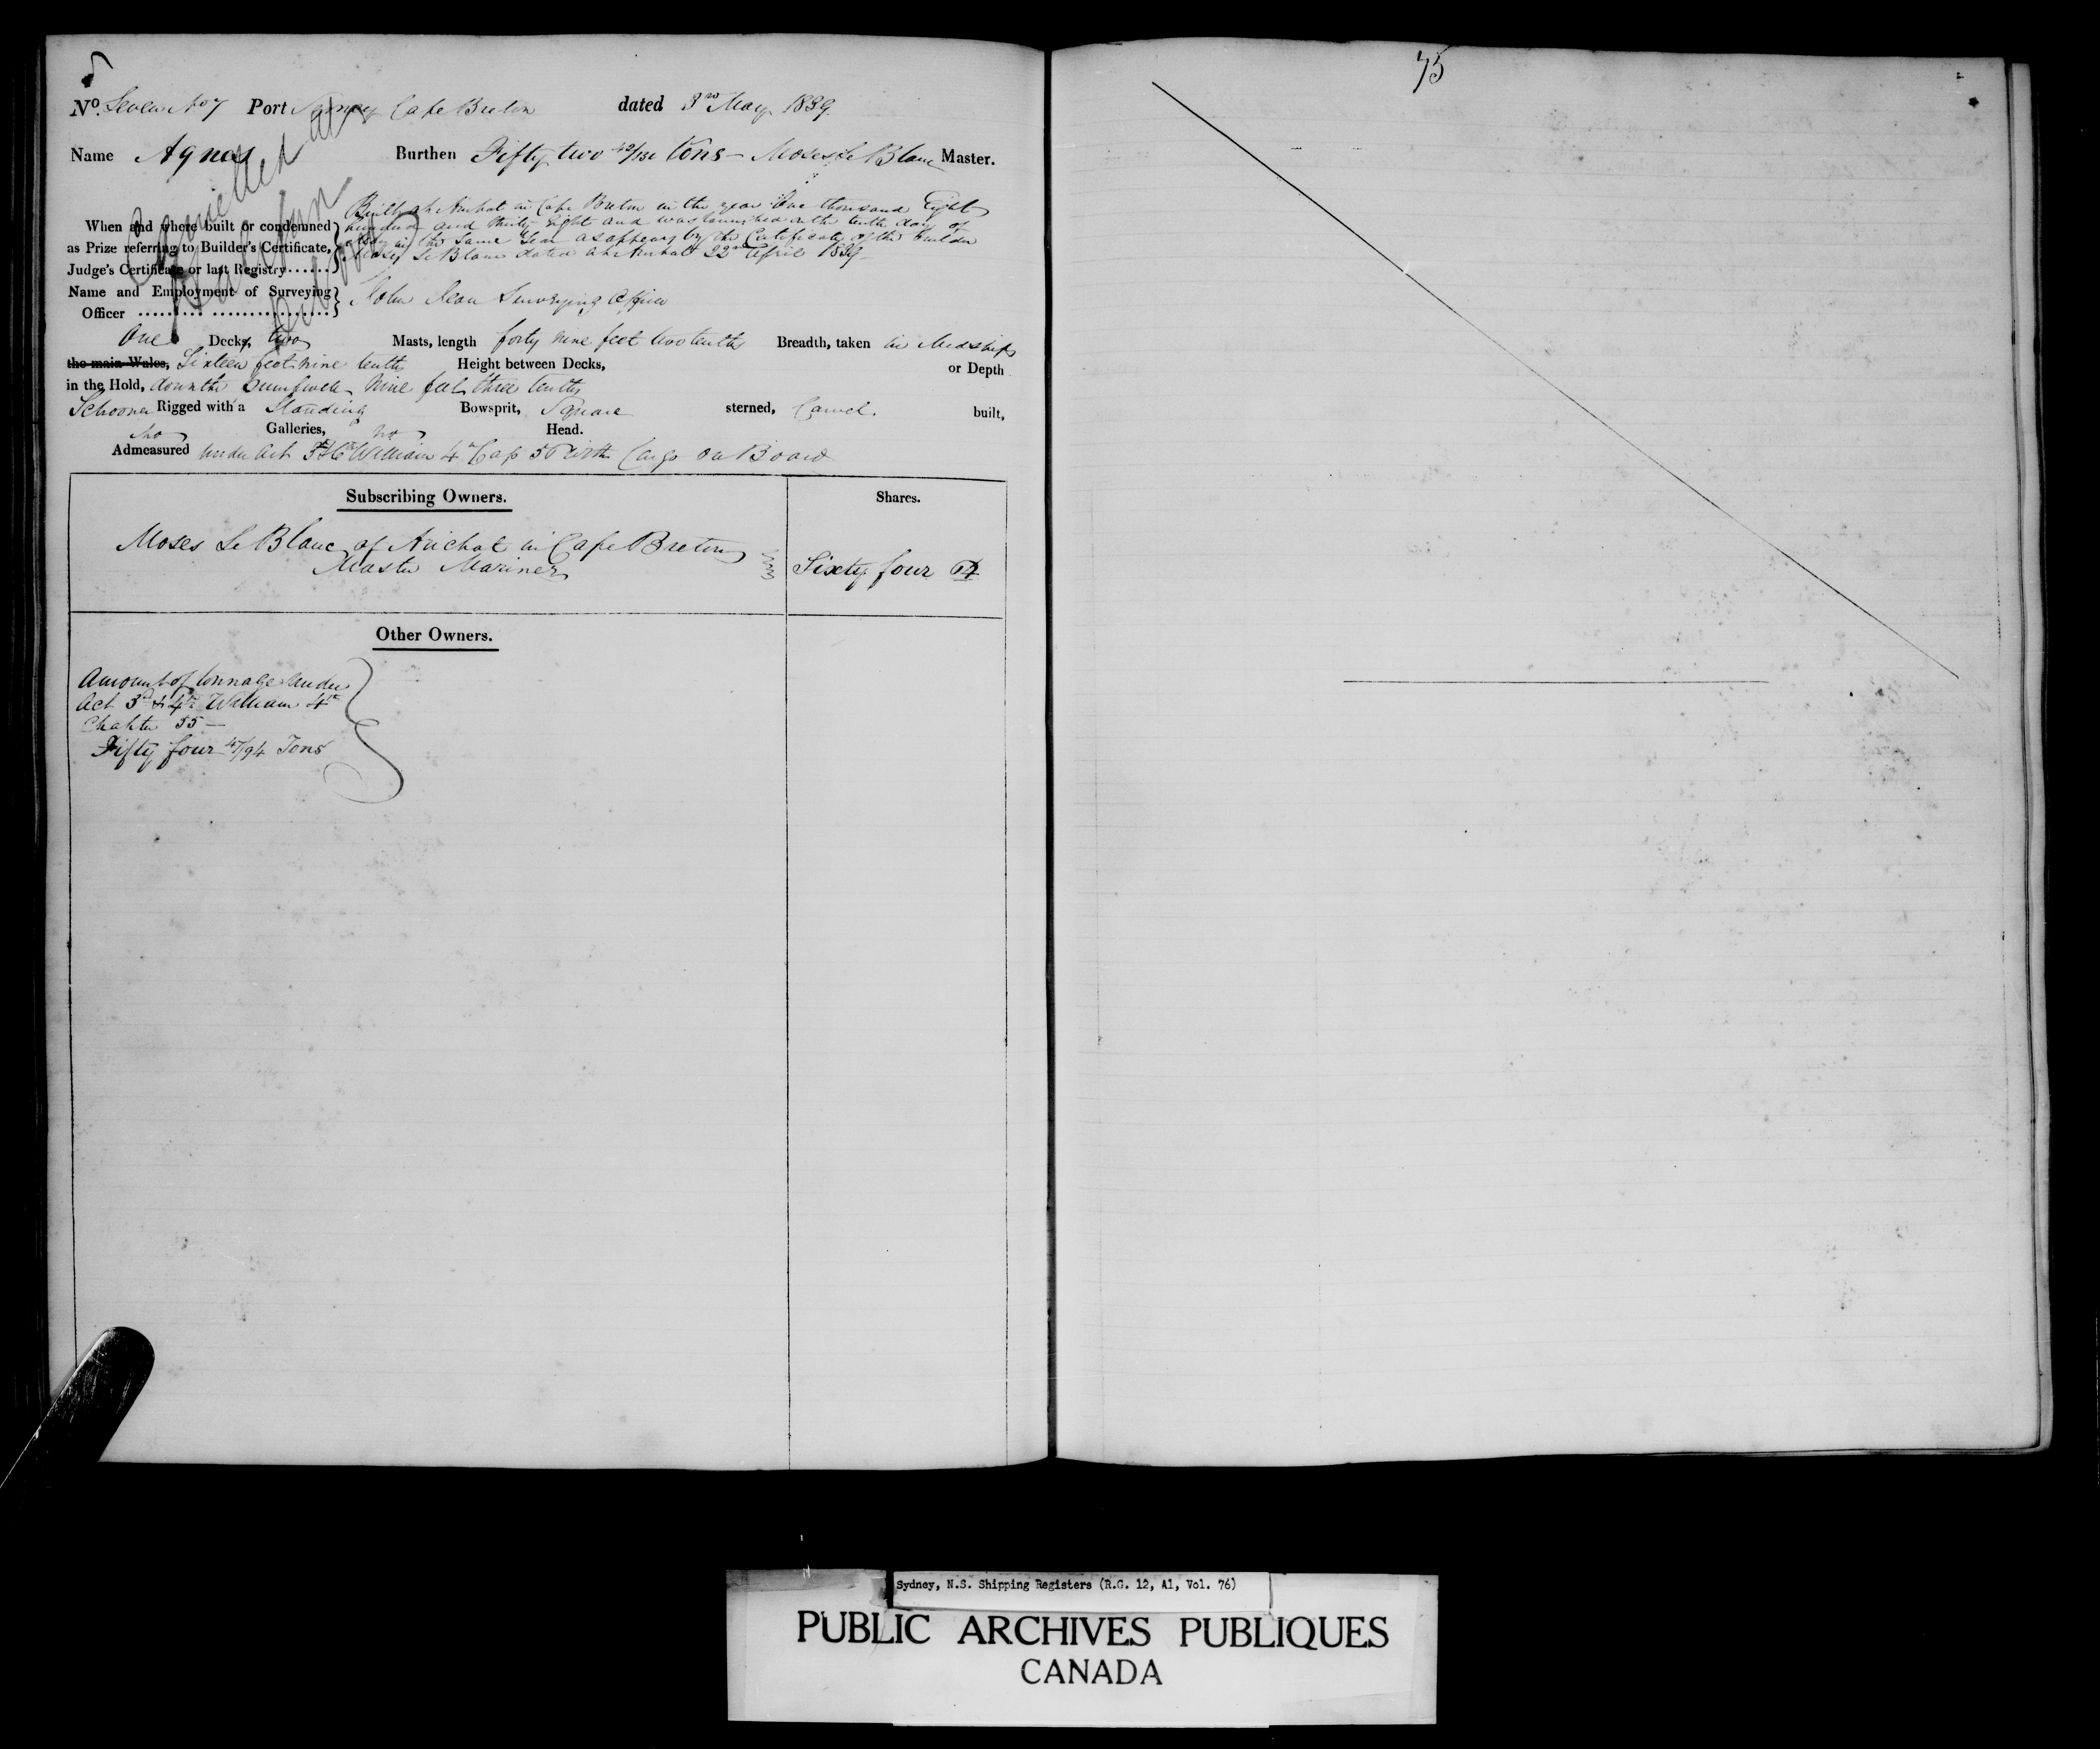 75
No. Seven No 7 Port Sydney Cape Breton dated 3rd May 1839
Name Agnes Burthen Fifty two 42/130 tons - Moses Le Blanc Master.
Cancelled at
Halifax
When and where built or condemned
as Prize referring to Builder's Certificate,
Judge's Certificate or last Registry
Built at Arichat in Cape Breton in the year One thousand Eight
hundred and thirty Eight and was launched on the tenth day of
in the same Year as appears by the Certificate of the Builder
Moses Le Blanc dated at Arichat 22nd April 1839
Name and Employment of Surveying
Officer
John Jean Surveying Officer
One Decks, two Masts, length forty nine feet two tenths Breadth, taken in Midships
the main Wales, Sixteen feet nine tenths Height between Decks, or Depth
in the Hold, down the Pumpwell Nine feet three tenths
Schooner Rigged with a Standing Bowsprit, Square sterned, Carvel built,
no Galleries, no Head.
Admeasured under Act 5 & 6 William 4th Cap 56 with Cargo on Board
Subscribing Owners. Shares.
Moses Le Blanc of Arichat in Cape Breton
Master Mariner
Sixty four 64
Other Owners.
Amount of tonnage under
Act 3d & 4th William 4th
Chapter 55 -
Fifty four 47/94 Tons
Sydney, N.S. Shipping Registers (R.G. 12, A1, Vol. 76)
PUBLIC ARCHIVES PUBLIQUES
CANADA